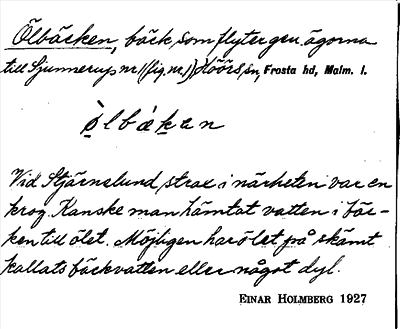 Ölbäcken, bäck som flyter gm. ägorna
till Sjunnerup nr 1 (fig. nr. 1) Höörs sn, Frosta hd, Malm. l.
ò̤lbákan
Vid Stjärnelund strax i närheten var en
krog. Kanske man hämtat vatten i bäc-
ken till ölet. Möjligen har ölet på skämt
kallats bäckvatten eller något dyl.
EINAR HOLMBERG 1927